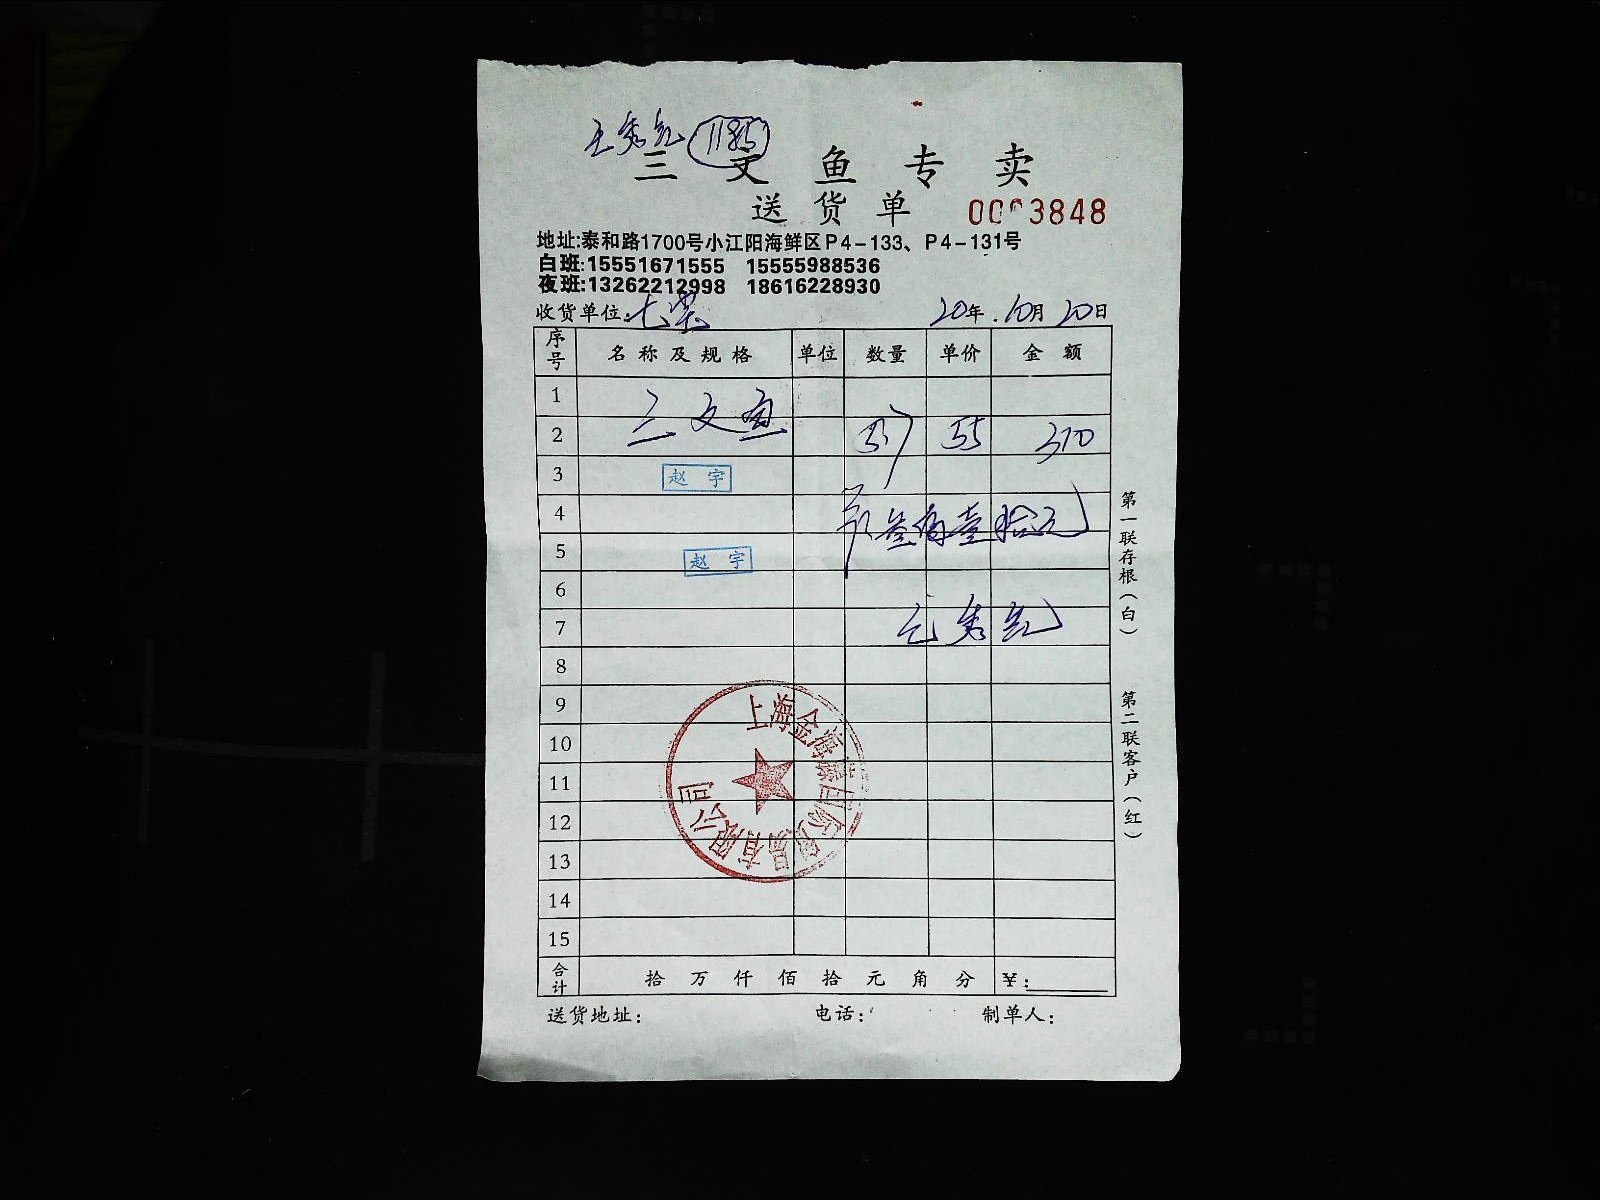 王秀 1185
三文鱼专卖
送货单 3848
地址:泰和路1700号小江阳海鲜区P4-133、P4-131号
白班:15551671555 15555988536
夜班:13262212998 18616228930
收货单位: 20年.10月20日
序号 名称及规格 单位 数量 单价 金额
1
三文鱼
2 55 310
3 赵宇
4 叁佰壹拾元
5 赵宇
6
7 秀
8
9
10
11
12
13
14
15
上海金海 国际贸易有限公司
合计 拾 万 仟 佰 拾 元 角 分 ¥:
送货地址: 电话: 制单人:
第一联存根(白)
第二联客户(红)